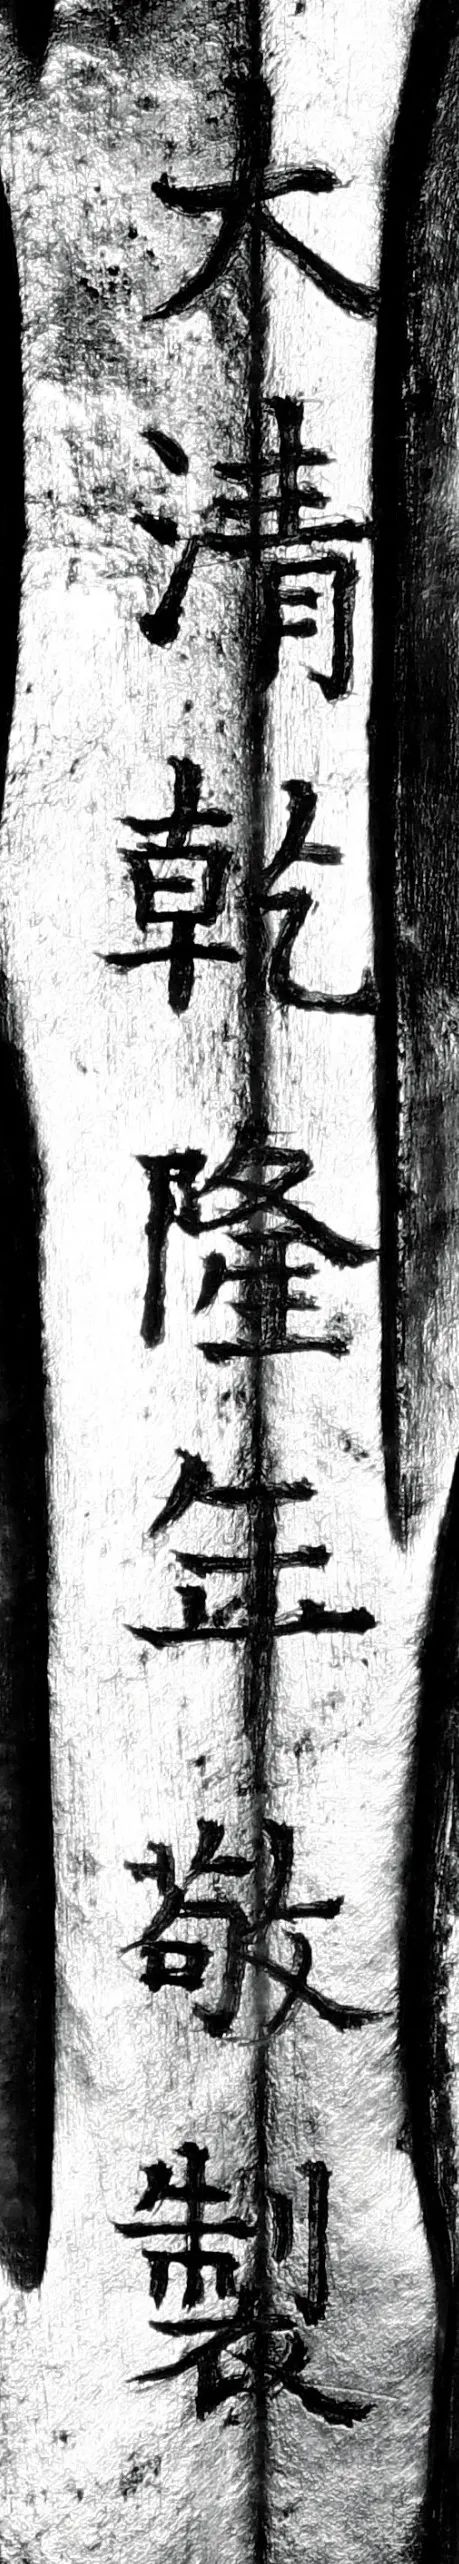 大清乾隆年敬製